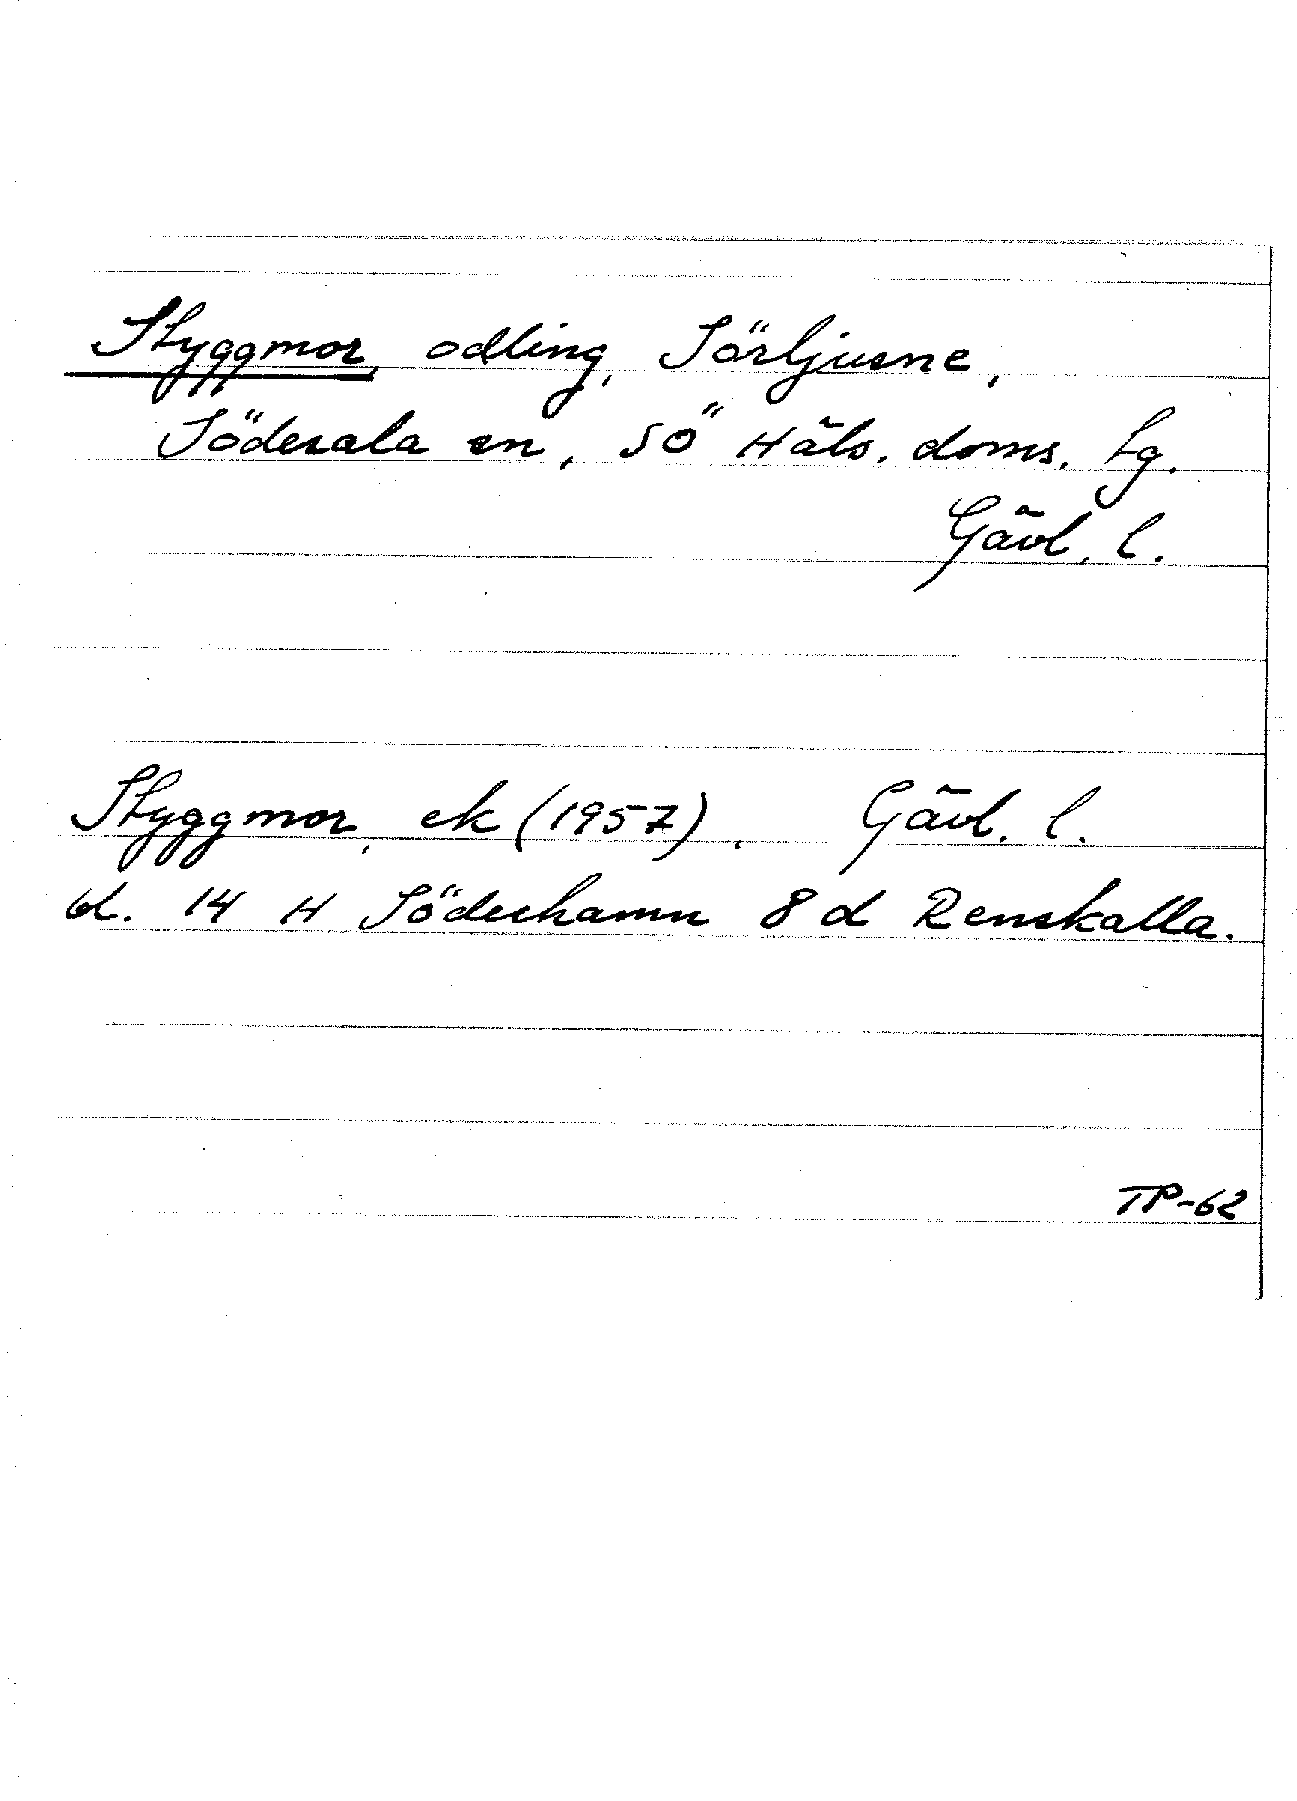 Styggmor, odling, Sörljusne,
Söderala sn, SÖ Häls. doms. tg.
Gävl. l.
Styggmor, ek (1957). Gävl. l.
bl. 14 H Söderhamn 8 d Renskalla.
TP-62